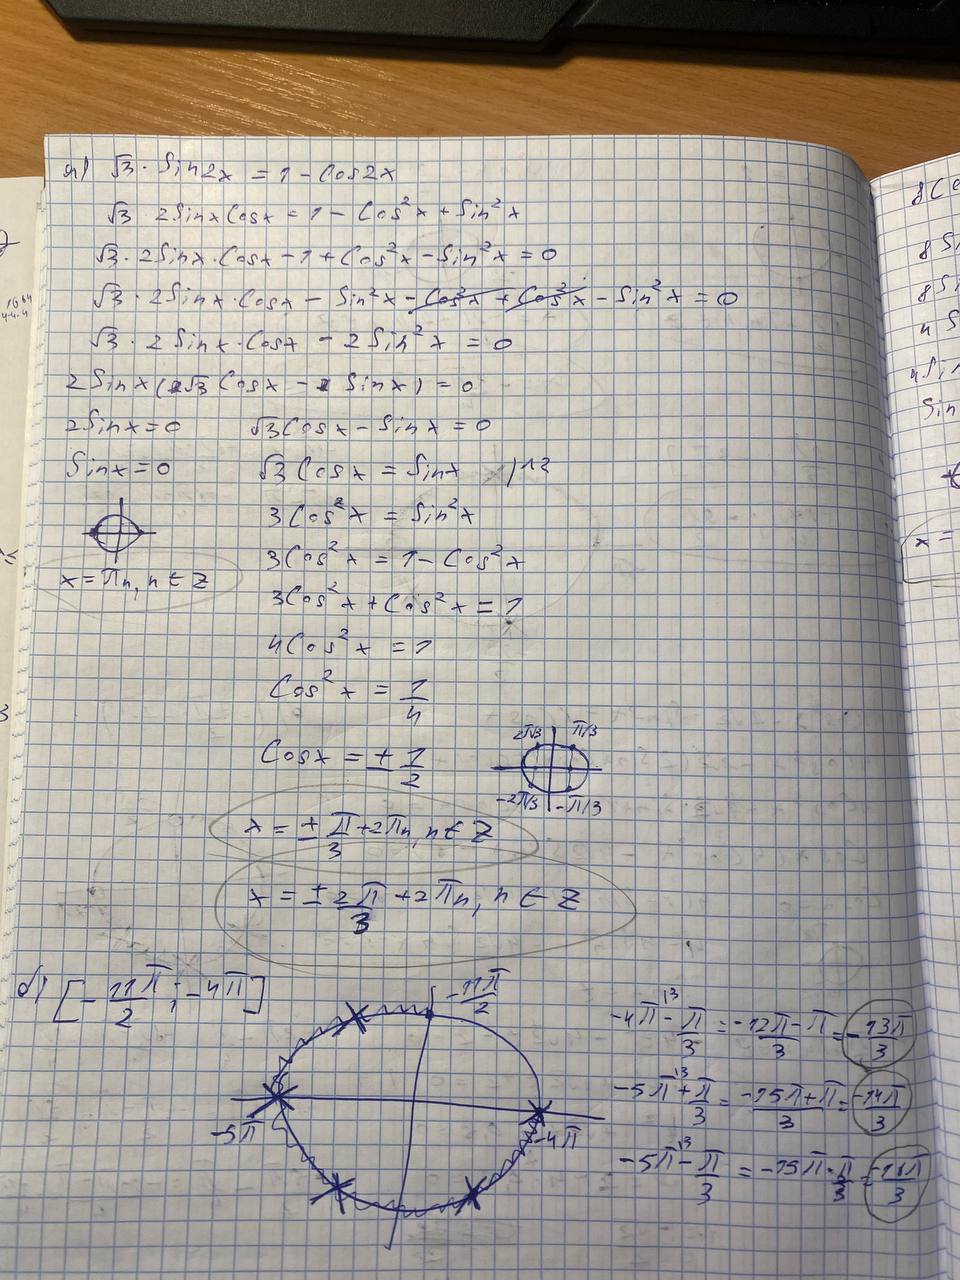 а) √3 · Sin2x = 1 - Cos2x
√3 · 2Sinx Cosx = 1 - Cos²x + Sin²x
√3 · 2Sinx · Cosx - 1 + Cos²x - Sin²x = 0
√3 · 2Sinx · Cosx - Sin²x - Cos²x + Cos²x - Sin²x = 0
√3 · 2Sinx · Cosx - 2Sin²x = 0
2Sinx (√3 Cosx - Sinx) = 0
2Sinx = 0 √3Cosx - Sinx = 0
Sinx = 0 √3 Cosx = Sinx /^2
3Cos²x = Sin²x
3Cos²x = 1 - Cos²x
x = πn, n ∈ Z
3Cos²x + Cos²x = 1
4Cos²x = 1
Cos²x = 1/4
Cosx = ± 1/2
2π/3 π/3
-2π/3 -π/3
x = ± π/3 + 2πn, n ∈ Z
x = ± 2π/3 + 2πn, n ∈ Z
б) [-11π/2 ; -4π]
-11π/2
-5π
-4π
-4π^13 - π/3 = -12π - π/3 = -13π/3
-5π^13 + π/3 = -15π + π/3 = -14π/3
-5π^13 - π/3 = -15π - π/3 = -16π/3
8Sin
4Sin
Sin
x =